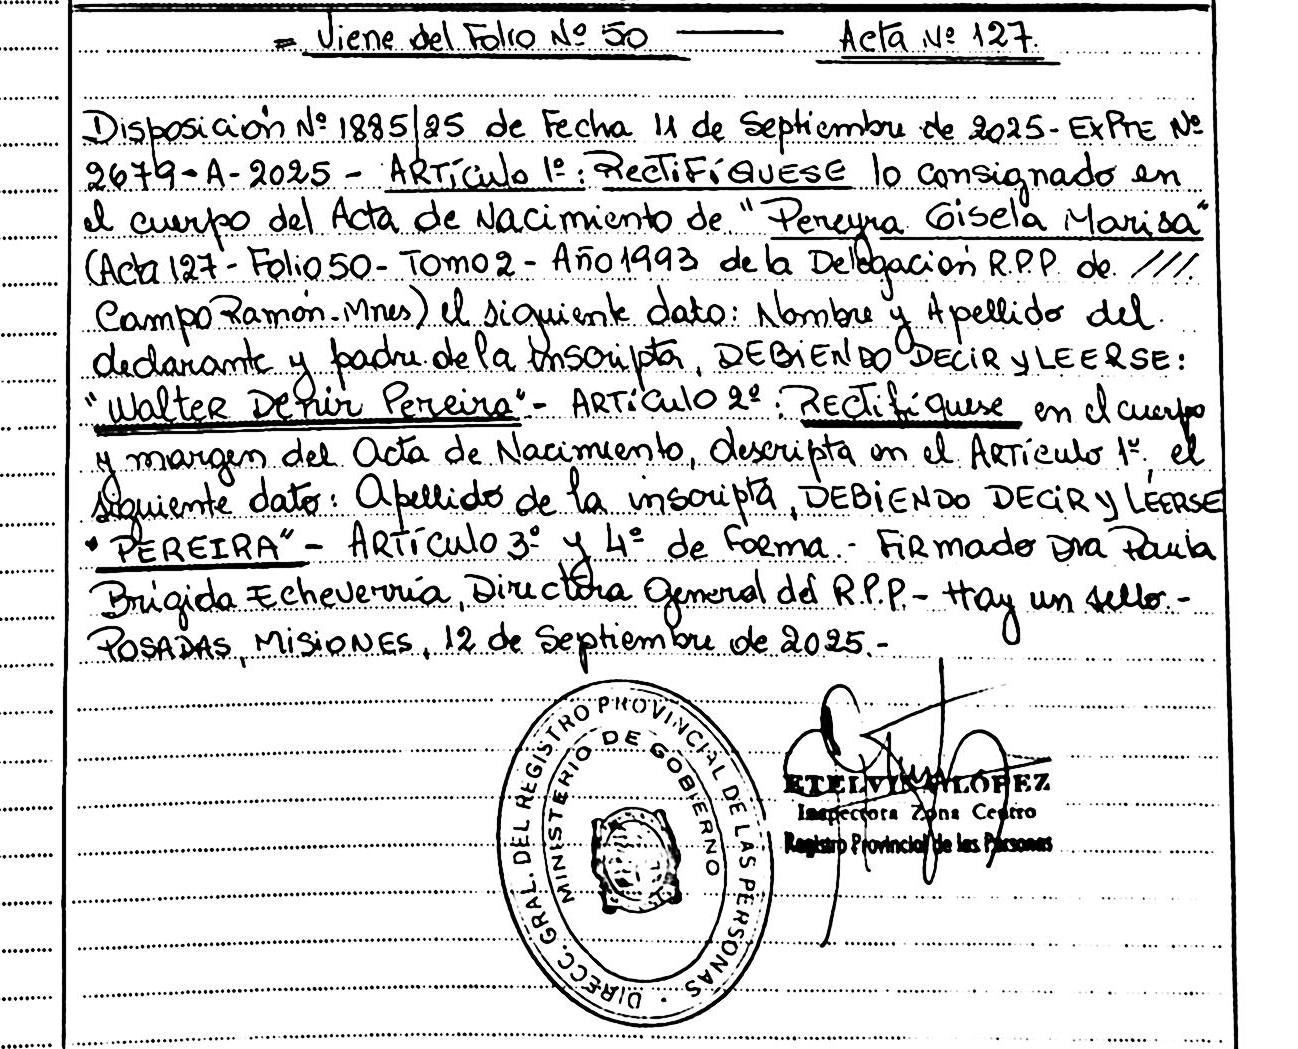 = Viene del Folio Nº 50 — Acta Nº 127.
Disposición Nº 1885/25 de Fecha 11 de Septiembre de 2025- EXPTE Nº
2679-A-2025 - ARTículo 1º: RectiFíQUESE lo consignado en
el cuerpo del Acta de Nacimiento de "Pereyra Gisela Marisa"
(Acta 127-Folio 50- Tomo 2- Año 1993 de la Delegación R.P.P. de ///.
Campo Ramón-Mnes) el siguiente dato: Nombre y Apellido del
declarante y padre de la inscripta, DEBIENDO DECIR y LEERSE:
"Walter Denir Pereira"- ARTÍCULO 2º: RECTifíquese en el cuerpo
y margen del Acta de Nacimiento, descripta en el Artículo 1º, el
siguiente dato: Apellido de la inscripta, DEBIENDO DECIR y LEERSE
"PEREIRA"- ARTÍCULO 3º y 4º de Forma.- FiRmado Dra Paula
Brígida Echeverría, Directora General del R.P.P.- Hay un sello.-
POSADAS, MISIONES, 12 de Septiembre de 2025.-
DIRECC. GRAL. DEL REGISTRO PROVINCIAL DE LAS PERSONAS
MINISTERIO DE GOBIERNO
ETELVINA LÓPEZ
Inspectora Zona Centro
Registro Provincial de las Personas